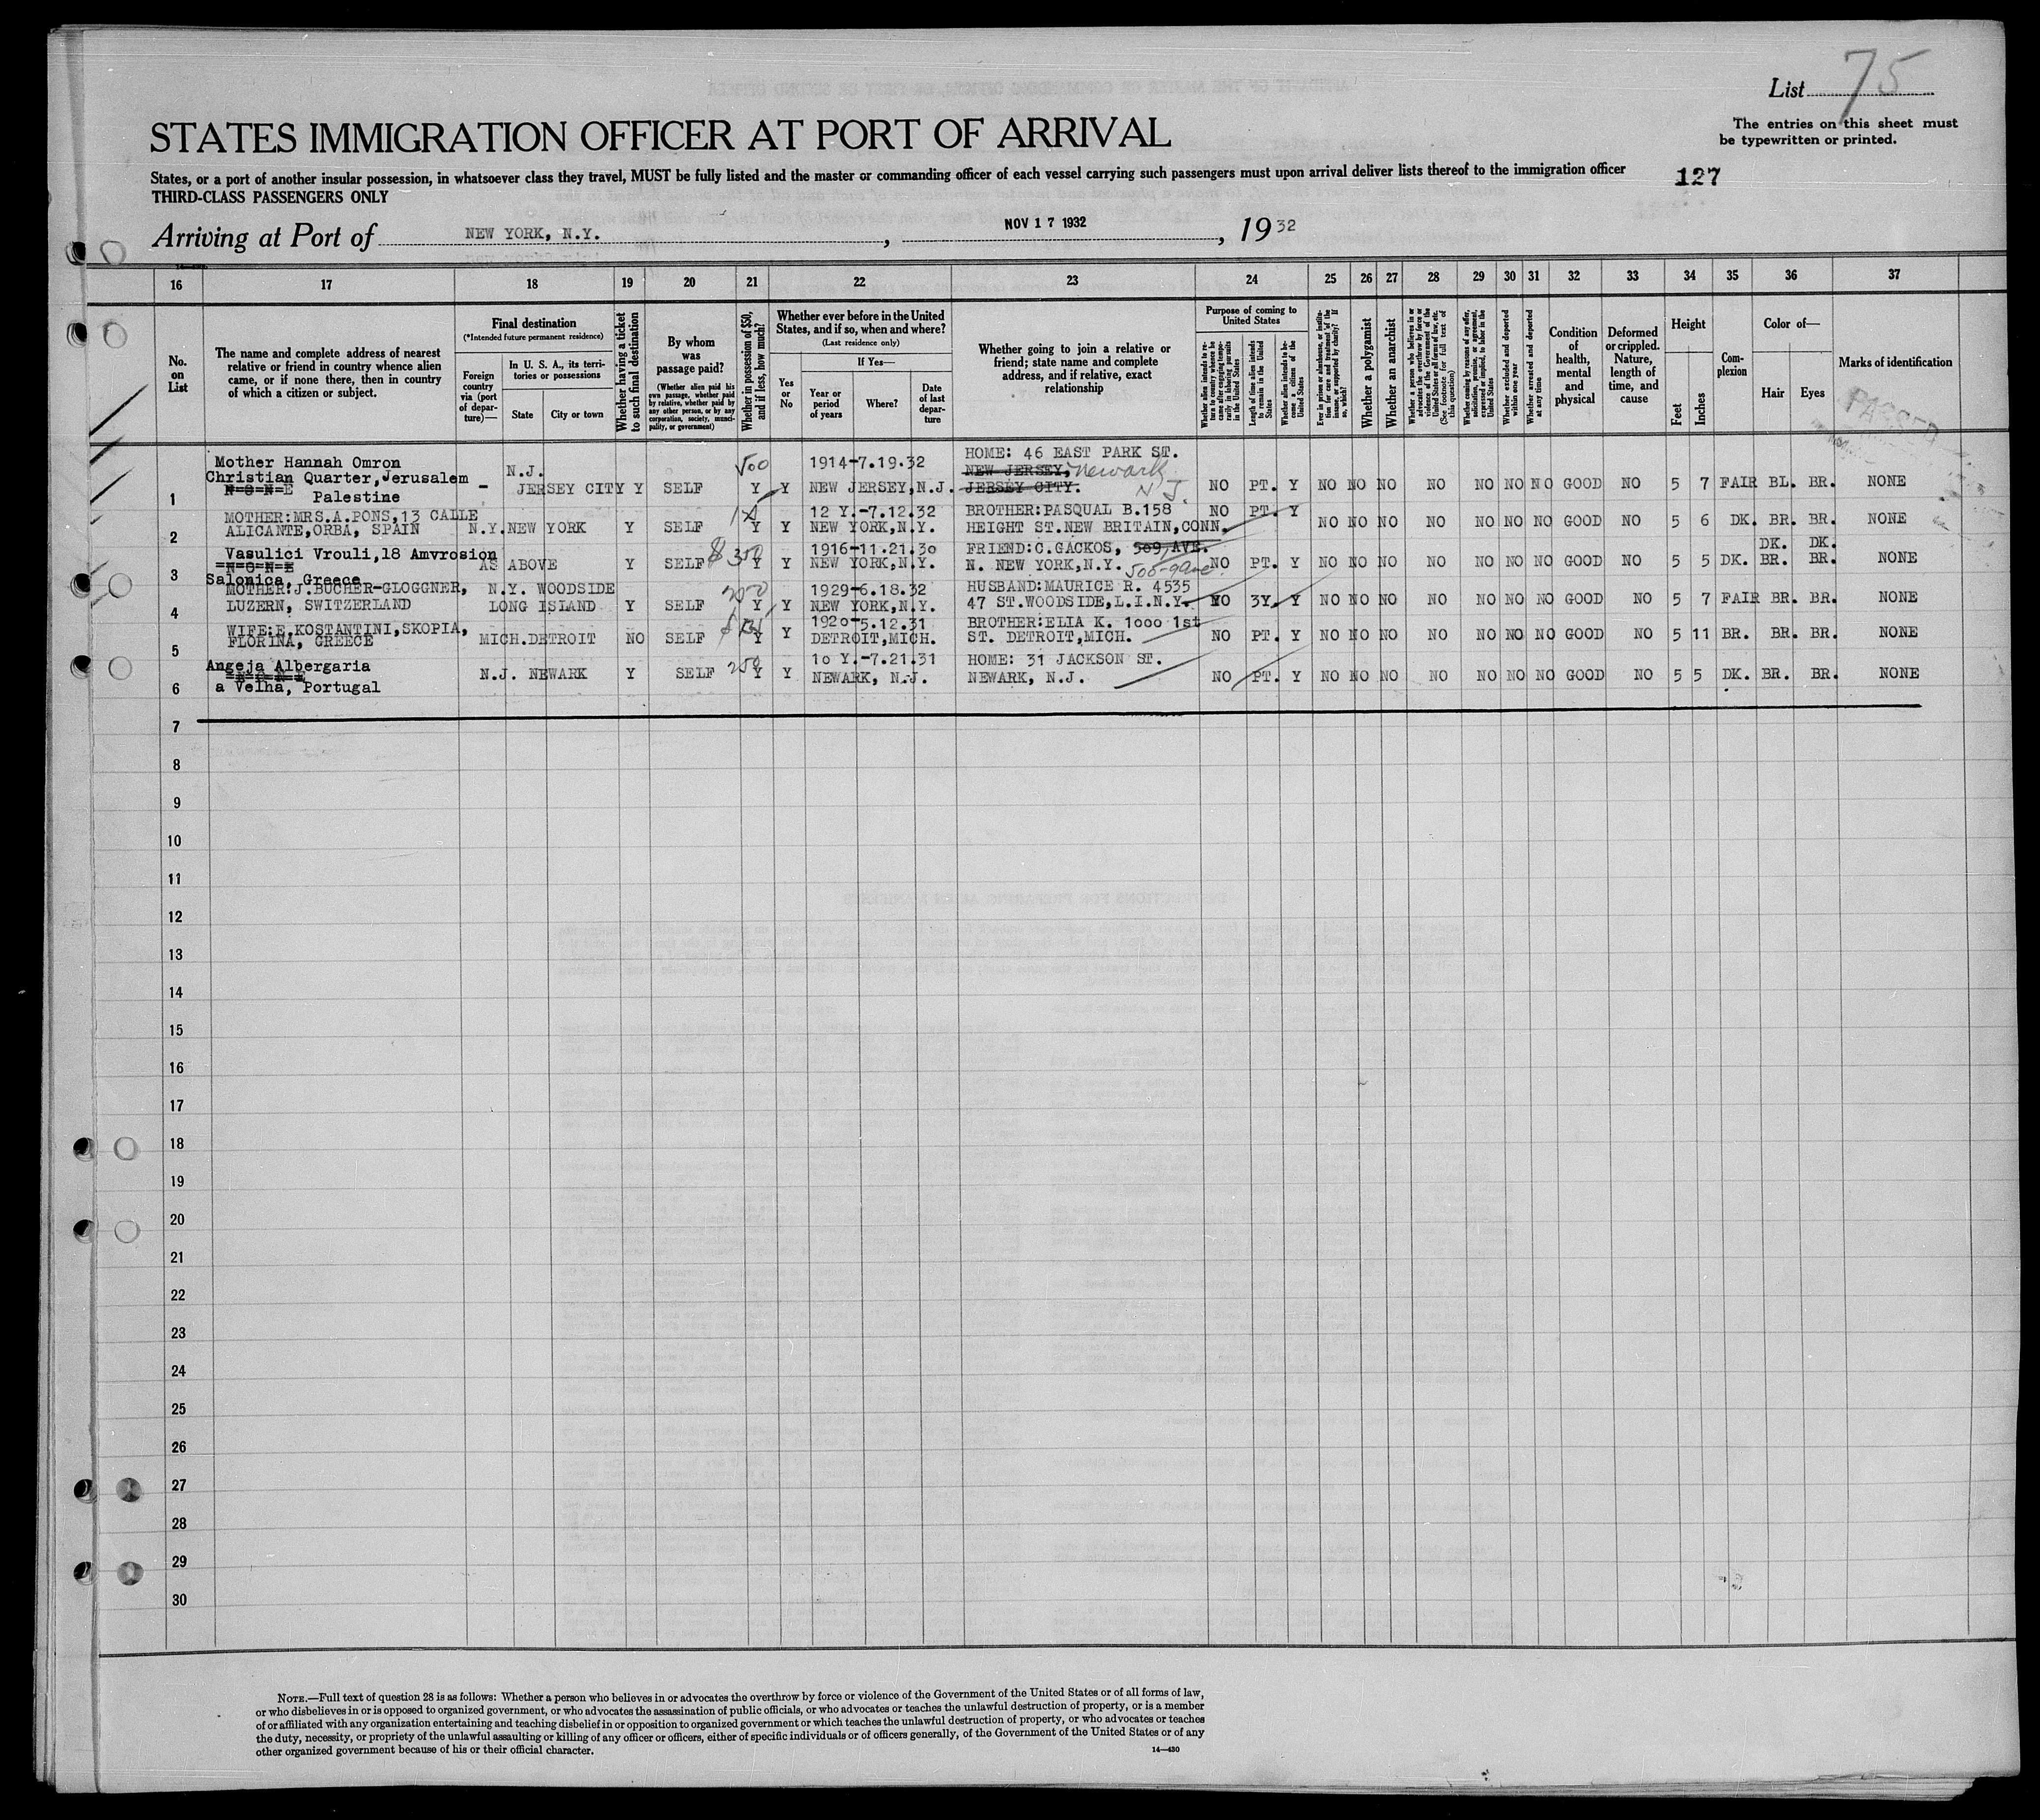 List 75
The entries on this sheet must
be typewritten or printed.
STATES IMMIGRATION OFFICER AT PORT OF ARRIVAL
States, or a port of another insular possession, in whatsoever class they travel, MUST be fully listed and the master or commanding officer of each vessel carrying such passengers must upon arrival deliver lists thereof to the immigration officer
127
THIRD-CLASS PASSENGERS ONLY
Arriving at Port of NEW YORK, N.Y. , NOV 17 1932 , 1932
16 17 18 19 20 21 22 23 24 25 26 27 28 29 30 31 32 33 34 35 36 37
No.
on
List
The name and complete address of nearest
relative or friend in country whence alien
came, or if none there, then in country
of which a citizen or subject.
Final destination
(*Intended future permanent residence)
Foreign
country
via (port
of depar-
ture)—
In U. S. A., its terri-
tories or possessions
State
City or town
Whether having a ticket
to such final destination
By whom
was
passage paid?
(Whether alien paid his
own passage, whether paid
by relative, whether paid by
any other person, or by any
corporation, society, munici-
pality, or government)
Whether in possession of $50,
and if less, how much?
Whether ever before in the United
States, and if so, when and where?
(Last residence only)
Yes
or
No
If Yes—
Year or
period
of years
Where?
Date
of last
depar-
ture
Whether going to join a relative or
friend; state name and complete
address, and if relative, exact
relationship
Purpose of coming to
United States
Whether alien intends to re-
turn to country whence he
came after engaging tempo-
rarily in laboring pursuits
in the United States
Length of time alien intends
to remain in the United
States
Whether alien intends to be-
come a citizen of the
United States
Ever in prison or almshouse, or institu-
tion for care and treatment of the
insane, or supported by charity? If
so, which?
Whether a polygamist
Whether an anarchist
Whether a person who believes in or
advocates the overthrow by force or
violence of the Government of the
United States or all forms of law, etc.
(See footnote for full text of
this question)
Whether coming by reason of any offer,
solicitation, promise, or agreement,
expressed or implied, to labor in the
United States
Whether excluded and deported
within one year
Whether arrested and deported
at any time
Condition
of
health,
mental
and
physical
Deformed
or crippled.
Nature,
length of
time, and
cause
Height
Feet
Inches
Com-
plexion
Color of—
Hair
Eyes
Marks of identification
PASSED
Mother Hannah Omron 500 1914-7.19.32 HOME: 46 EAST PARK ST.
Christian Quarter, Jerusalem N.J. NEW JERSEY, Newark
1 N=O=N=E Palestine - JERSEY CITY Y SELF Y Y NEW JERSEY, N.J. JERSEY CITY. N J. NO PT. Y NO NO NO NO NO NO NO GOOD NO 5 7 FAIR BL. BR. NONE
MOTHER:MRS.A.PONS,13 CALLE 12 Y.-7.12.32 BROTHER:PASQUAL B.158 NO PT. Y
2 ALICANTE,ORBA, SPAIN N.Y. NEW YORK Y SELF Y Y NEW YORK,N.Y. HEIGHT ST.NEW BRITAIN,CONN. NO NO NO NO NO NO NO GOOD NO 5 6 DK. BR. BR. NONE
Vasulici Vrouli,18 Amvrosion $350 1916-11.21.30 FRIEND:C.GACKOS, 509, AVE. DK. DK.
3 N=O=N=E AS ABOVE Y SELF Y Y NEW YORK,N.Y. N. NEW YORK,N.Y. NO PT. Y NO NO NO NO NO NO NO GOOD NO 5 5 DK. BR. BR. NONE
Salonica, Greece
MOTHER:J.BUCHER-GLOGGNER, N.Y. WOODSIDE 250 1929-6.18.32 HUSBAND:MAURICE R. 4535
4 LUZERN, SWITZERLAND LONG ISLAND Y SELF Y Y NEW YORK,N.Y. 47 ST.WOODSIDE,L.I.N.Y. NO 3Y. Y NO NO NO NO NO NO NO GOOD NO 5 7 FAIR BR. BR. NONE
WIFE:E.KOSTANTINI,SKOPIA, 1920-5.12.31 BROTHER:ELIA K. 1000 1st
5 FLORINA, GREECE MICH.DETROIT NO SELF Y Y DETROIT,MICH. ST. DETROIT,MICH. NO PT. Y NO NO NO NO NO NO NO GOOD NO 5 11 BR. BR. BR. NONE
Angeja Albergaria 250 10 Y.-7.21.31 HOME: 31 JACKSON ST.
6 N=O=N=E N.J. NEWARK Y SELF Y Y NEWARK, N.J. NEWARK, N.J. NO PT. Y NO NO NO NO NO NO NO GOOD NO 5 5 DK. BR. BR. NONE
a Velha, Portugal
7
8
9
10
11
12
13
14
15
16
17
18
19
20
21
22
23
24
25
26
27
28
29
30
NOTE.—Full text of question 28 is as follows: Whether a person who believes in or advocates the overthrow by force or violence of the Government of the United States or of all forms of law,
or who disbelieves in or is opposed to organized government, or who advocates the assassination of public officials, or who advocates or teaches the unlawful destruction of property, or is a member
of or affiliated with any organization entertaining and teaching disbelief in or opposition to organized government or which teaches the unlawful destruction of property, or who advocates or teaches
the duty, necessity, or propriety of the unlawful assaulting or killing of any officer or officers, either of specific individuals or of officers generally, of the Government of the United States or of any
other organized government because of his or their official character.
14—430